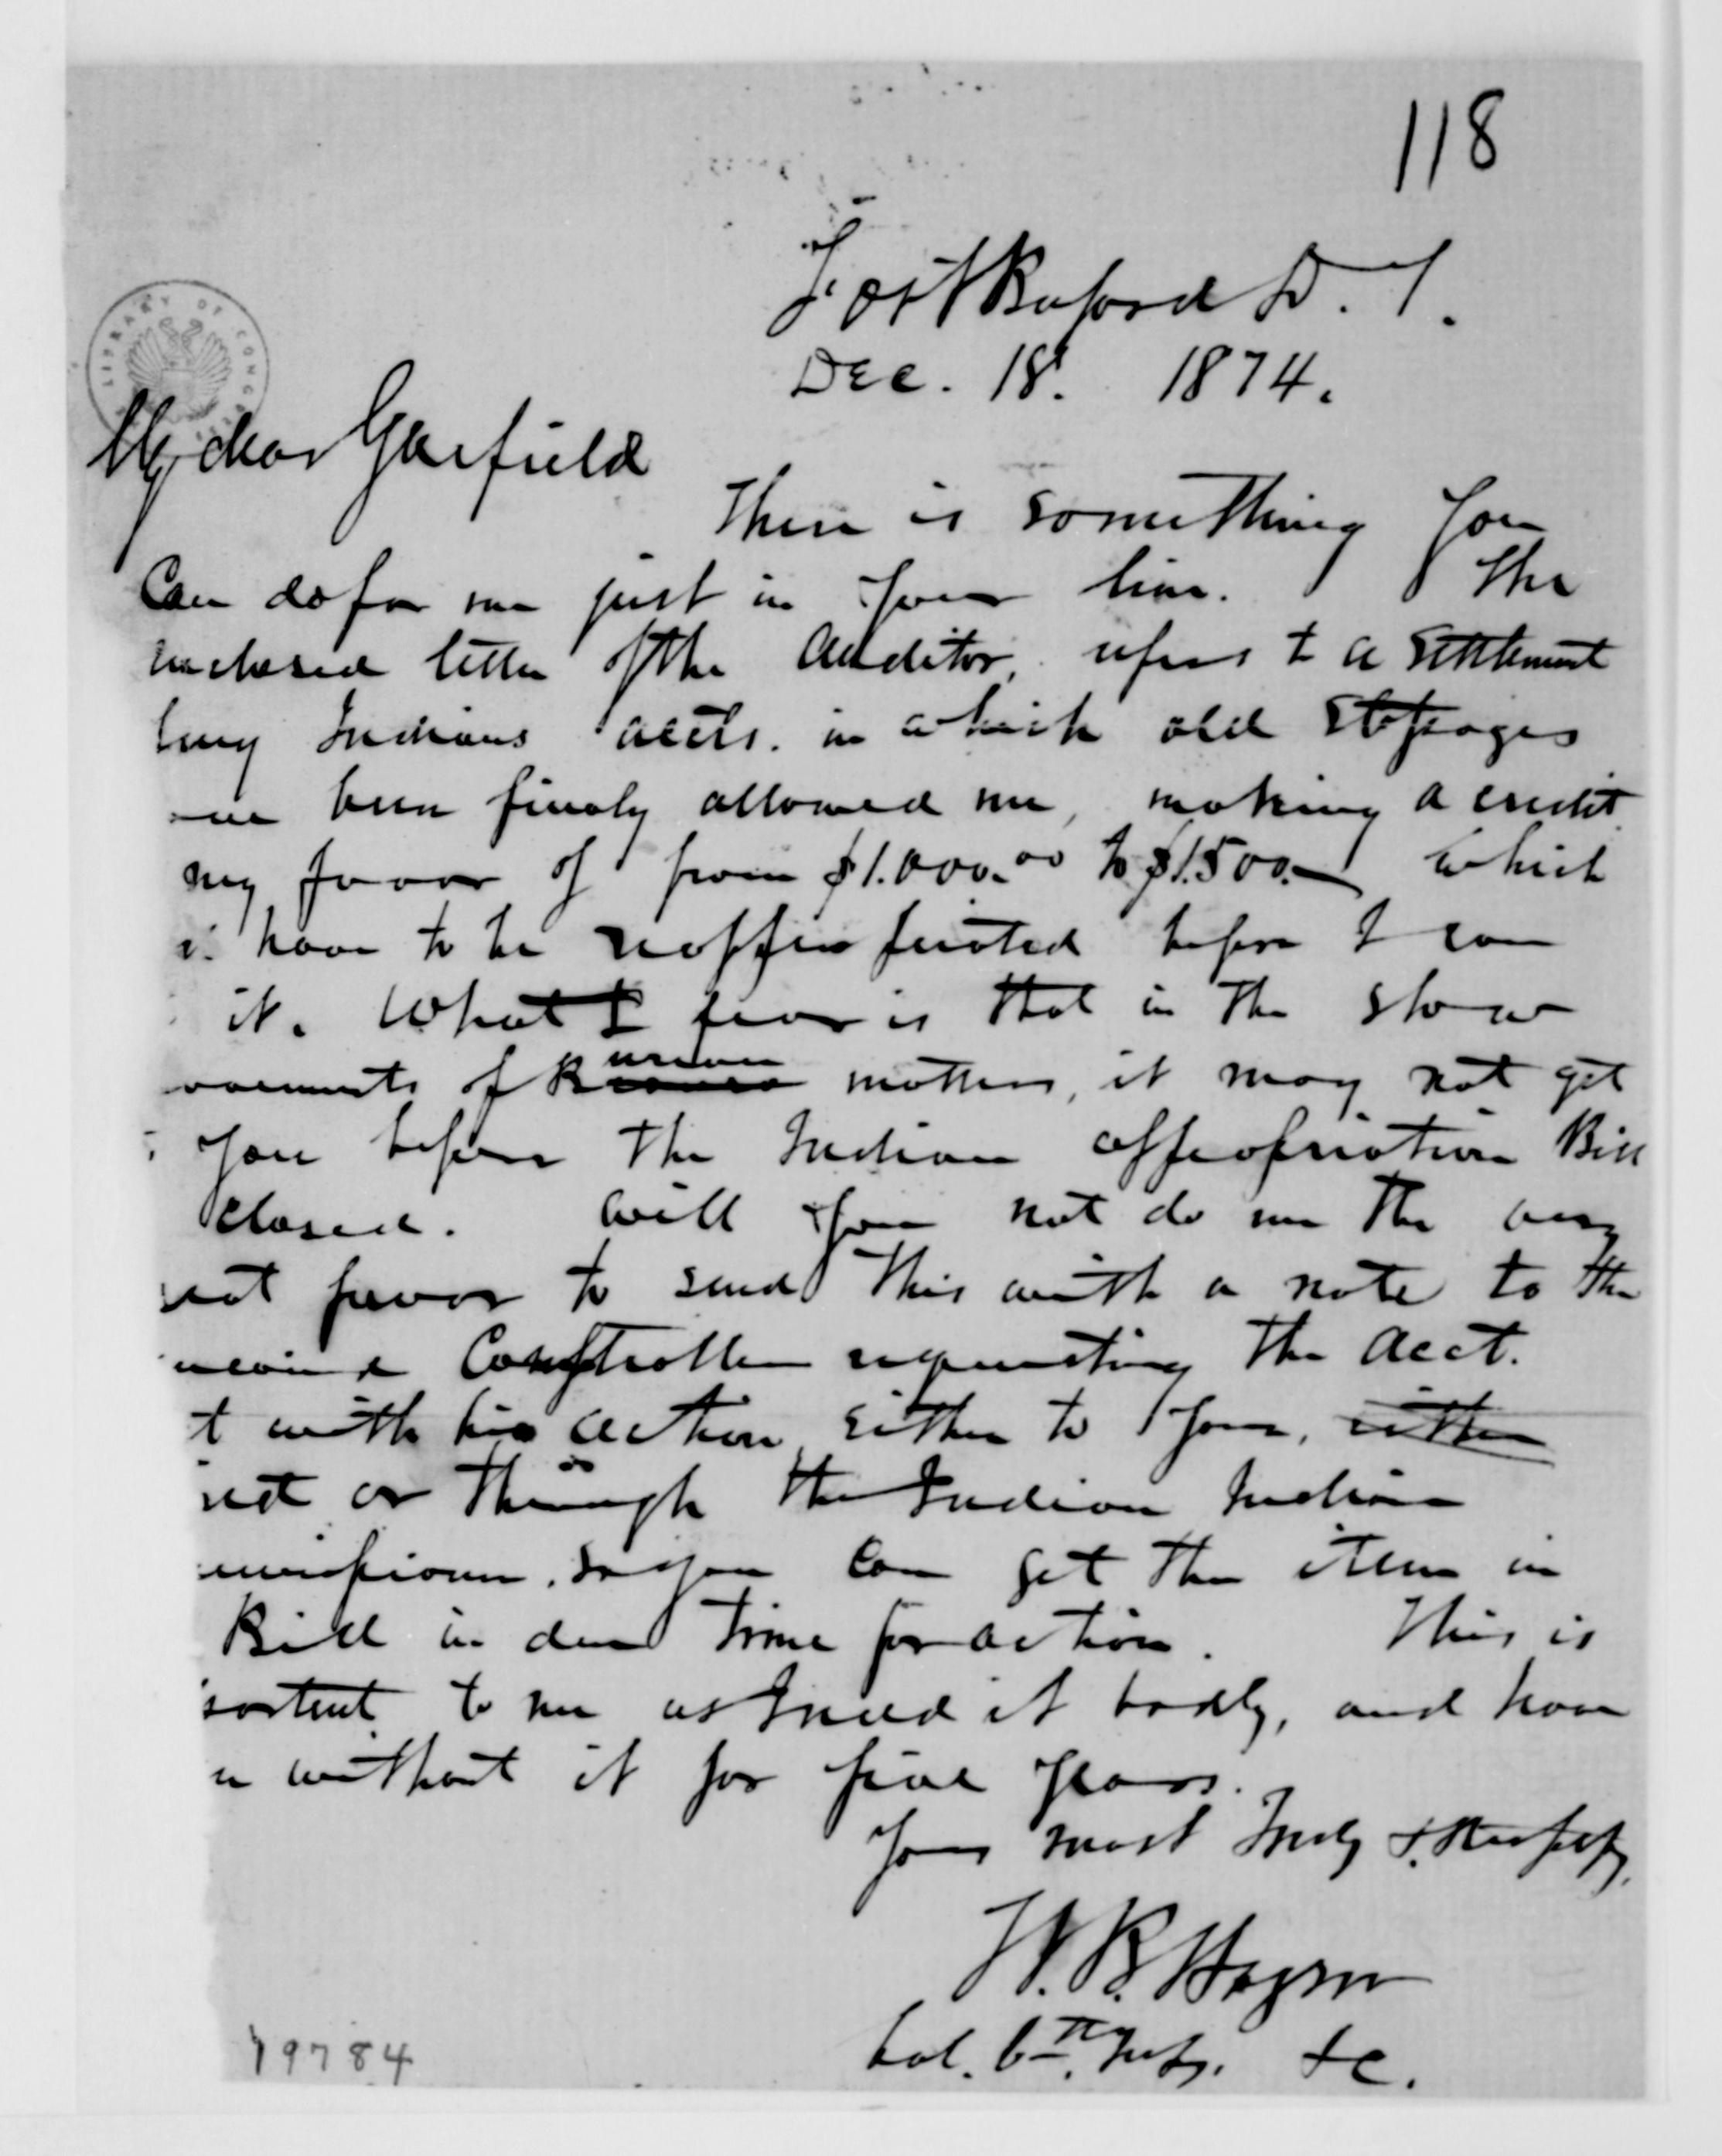 118
Fort Buford D. T.
Dec. 18. 1874.
LIBRARY OF CONGRESS
My dear Garfield
There is something you
Can do for me just in your line. The
inclosed letter of the Auditor, refers to a settlement
my Indians accts. in which old stopages
ve been finaly allowed me, making a credit
my favor of from $1.000.00 to $1.500.— which
have to be reappropriated before I can
it. What I fear is that in the slow
ovements of Bureau matters, it may not get
you before the Indian appropriation Bill
closed. Will you not do me the very
eat favor to send this with a note to the
Comptroller requesting the acct.
t with his action either to you, either
rect or through the Indian Indian
so you can get the item in
Bill in due time for action. This is
portent to me as I need it badly, and have
n without it for five years.
Yours most Truly & Respfly.
W. B. Hazen
Col. 6th Infty. &c.
19784